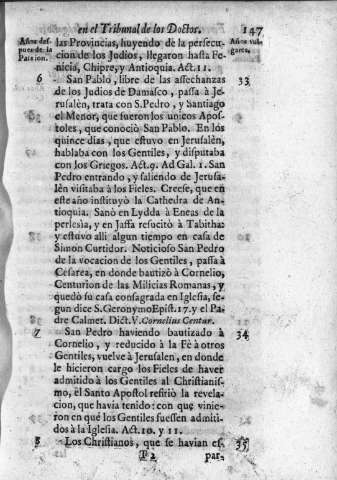 en el Tribunal de los Doctor. 147
Años des-
pues de la
Passion.
Años vulg
gares.
las Provincias, huyendo de la persecu-
cion de los Judios, llegaron hasta Fe-
nicia, Chipre, y Antioquia. Act. 11.
6 San Pablo, libre de las assechanzas 33
de los Judios de Damasco, passa à Je-
rusalèn, trata con S. Pedro, y Santiago
el Menor, que fueron los unicos Apos-
toles, que conociò San Pablo. En los
quince dias, que estuvo en Jerusalèn,
hablaba con los Gentiles, y disputaba
con los Griegos. Act. 9. Ad Gal. 1. San
Pedro entrando, y saliendo de Jerusa-
lèn visitaba à los Fieles. Creese, que en
este año instituyò la Cathedra de An-
tioquia. Sanò en Lydda à Eneas de la
perlesìa, y en Jaffa resucitò à Tabitha:
y estuvo alli algun tiempo en casa de
Simon Curtidor. Noticioso San Pedro
de la vocacion de los Gentiles, passa à
Cesarea, en donde bautizò à Cornelio,
Centurion de las Milicias Romanas, y
quedò su casa consagrada en Iglesia, se-
gun dice S. Geronymo Epist. 17. y el Pa-
dre Calmet. Dict. V. Cornelius Centur.
7 San Pedro haviendo bautizado à 34
Cornelio, y reducido à la Fè à otros
Gentiles, vuelve à Jerusalen, en donde
le hicieron cargo los Fieles de haver
admitido à los Gentiles al Christianis-
mo, el Santo Apostol refiriò la revela-
cion, que havia tenido: con que vinie-
ron en què los Gentiles fuessen admiti-
dos à la Iglesia. Act. 10. y 11.
8 Los Christianos, que se havian es- 35
par-